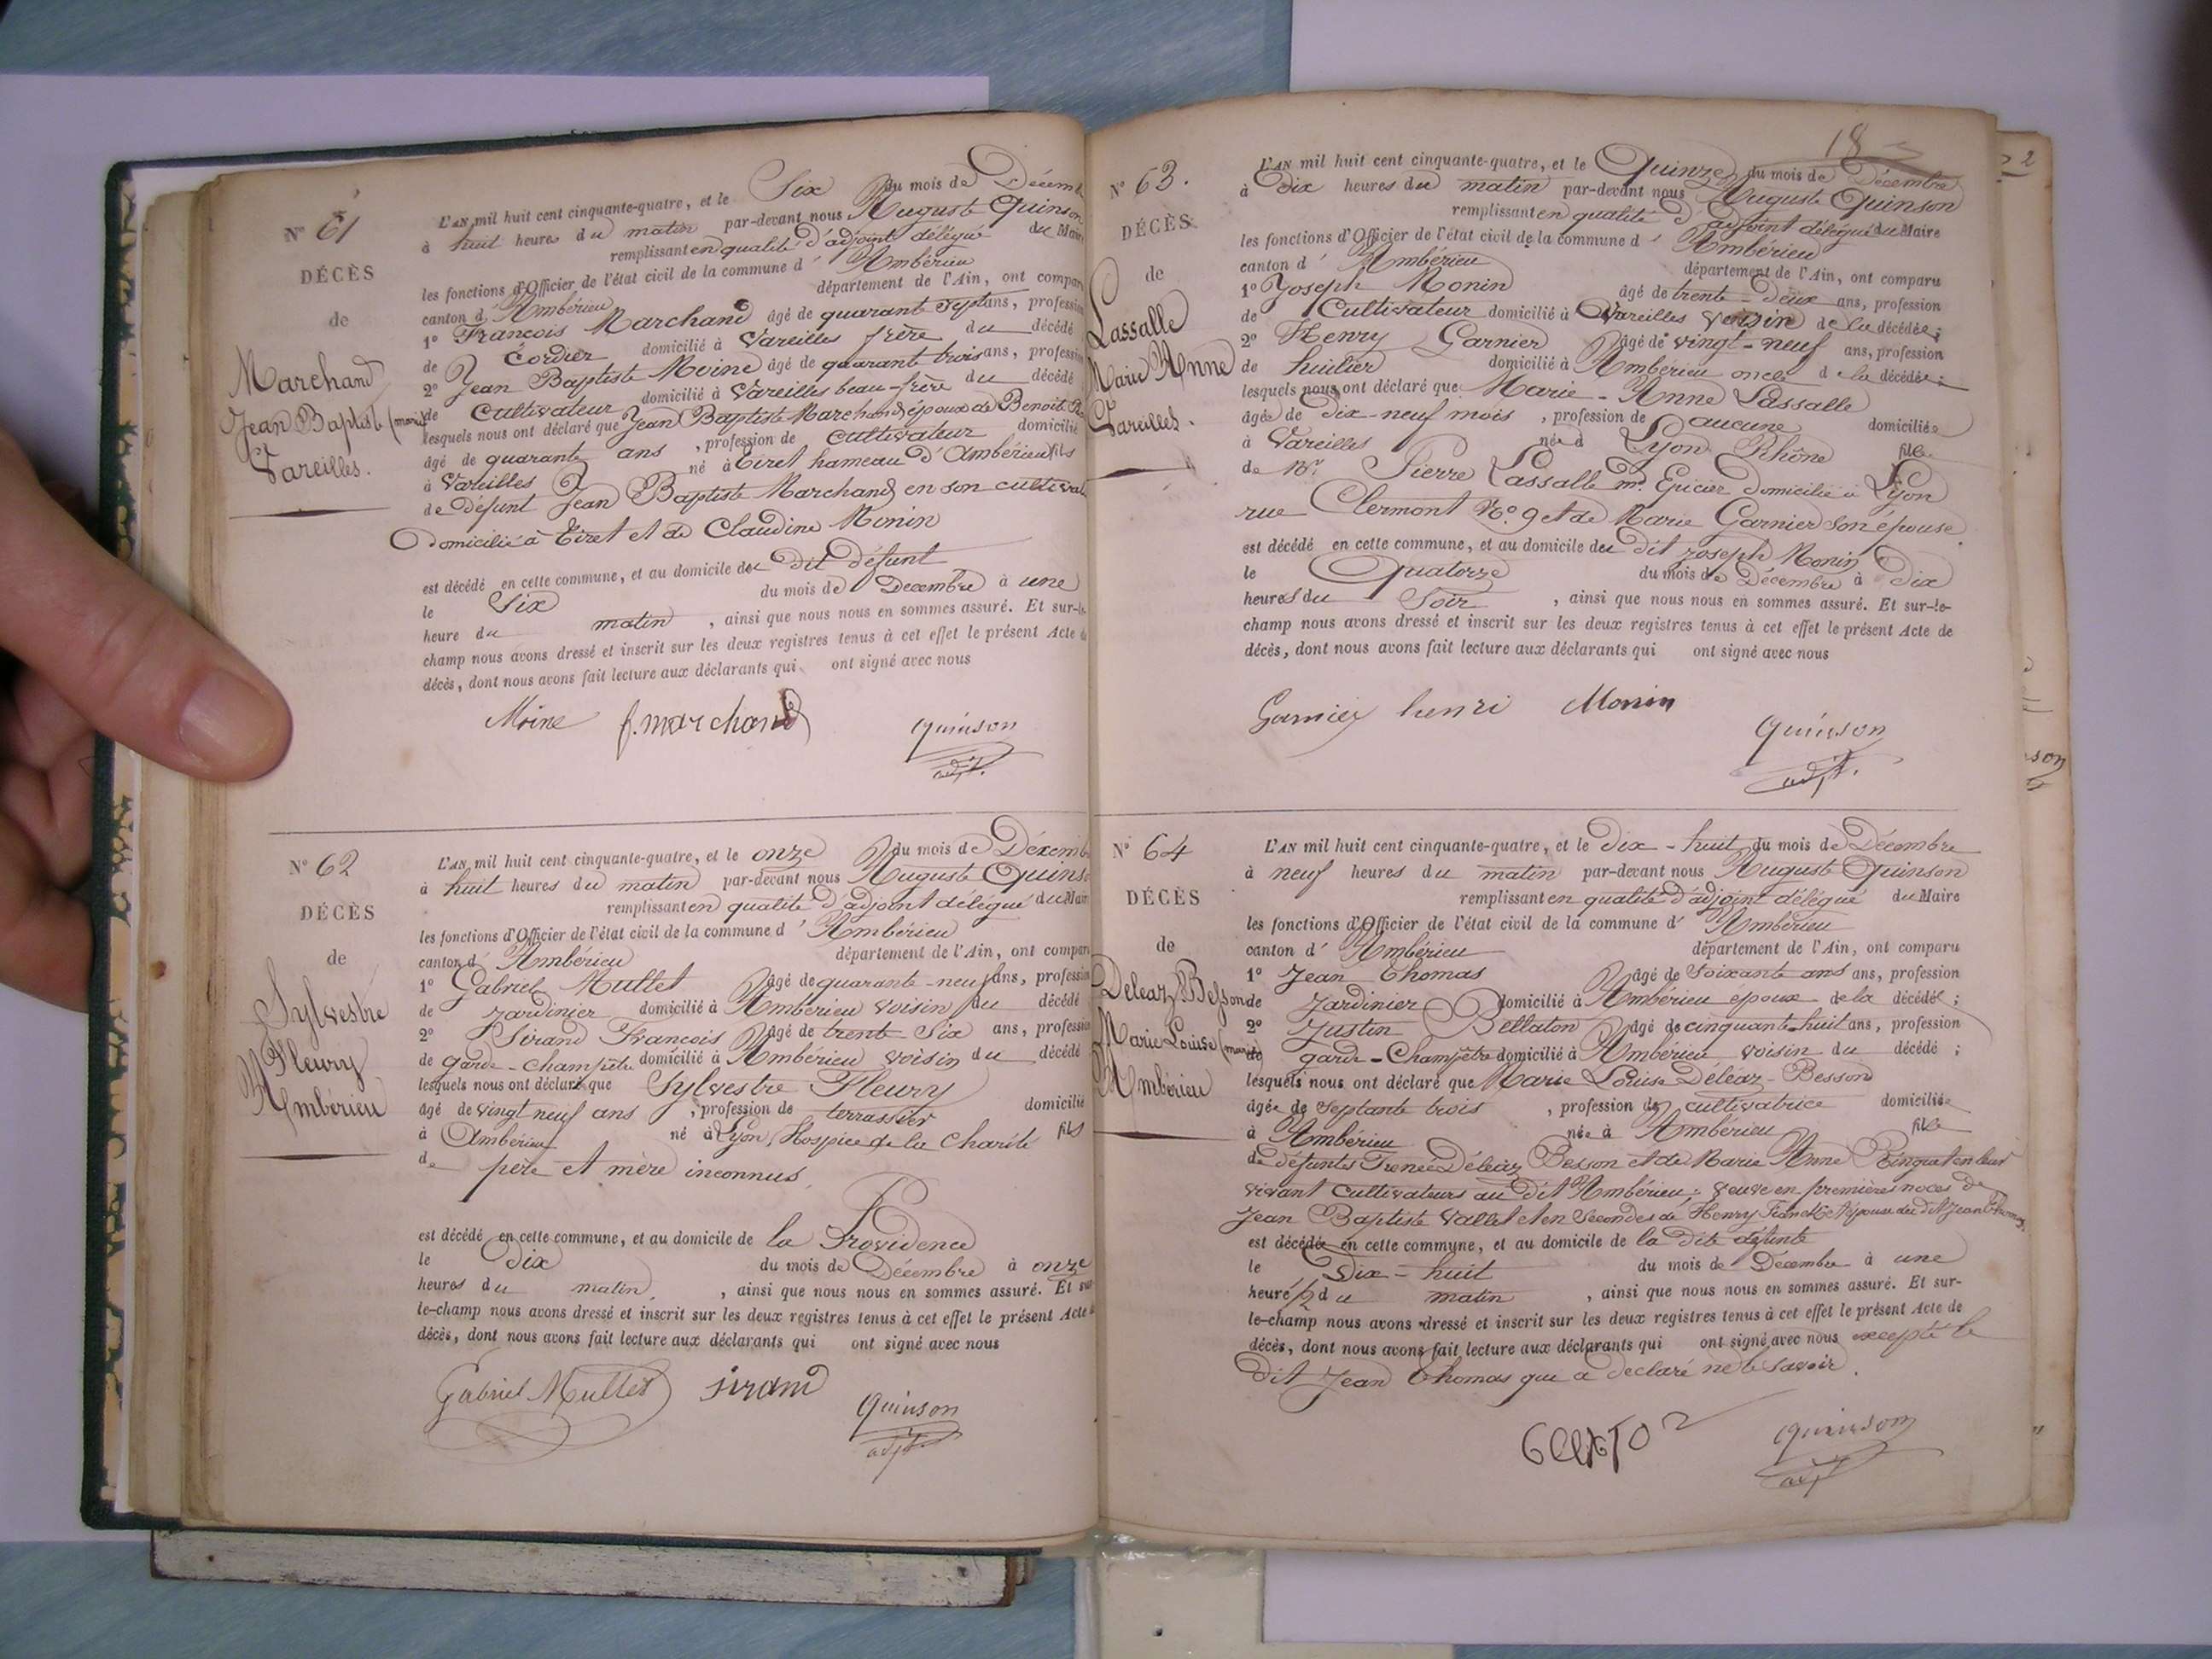 N° 61
DÉCÈS
de
Marchand
Jean Baptiste (marié)
Vareilles.
L'AN mil huit cent cinquante-quatre, et le Six du mois de Décem
à huit heures du matin par-devant nous Auguste Quinson
remplissant en qualité d'adjoint délégué du Maire
les fonctions d'Officier de l'état civil de la commune d' Ambérieu
canton d' Ambérieu département de l'Ain, ont compar
1° François Marchand âgé de quarante Sept ans, profession
de Cordier domicilié à Vareilles frère du décédé
2° Jean Baptiste Moine âgé de quarante trois ans, profession
de Cultivateur domicilié à Vareilles beau-frère du décédé
lesquels nous ont déclaré que Jean Baptiste Marchand époux de Benoite
âgé de quarante ans, profession de cultivateur domicilié
à Vareilles né à Tiret hameau d'Ambérieu fils
de défunt Jean Baptiste Marchand en son cultivat
Domicilié à Tiret et de Claudine Monin
est décédé en cette commune, et au domicile du dit défunt
le Six du mois de Decembre à une
heure du matin, ainsi que nous nous en sommes assuré. Et sur-le-
champ nous avons dressé et inscrit sur les deux registres tenus à cet effet le présent Acte de
décès, dont nous avons fait lecture aux déclarants qui ont signé avec nous
Moine f. marchand quinson
adjt.
N° 62
DÉCÈS
de
Sylvestre
Fleury
Ambérieu
L'AN mil huit cent cinquante-quatre, et le onze du mois de Décemb
à huit heures du matin par-devant nous Auguste Quins
remplissant en qualité d'adjoint délégué du Maire
les fonctions d'Officier de l'état civil de la commune d' Ambérieu
canton d' Ambérieu département de l'Ain, ont compar
1° Gabriel Mullet âgé de quarante-neuf ans, profession
de Jardinier domicilié à Ambérieu voisin du décédé
2° Sirand François âgé de trente Six ans, profession
de garde-champêtre domicilié à Ambérieu voisin du décédé
lesquels nous ont déclaré que Sylvestre Fleury
âgé de vingt neuf ans, profession de terrassier domicilié
à Ambérieu né à Lyon, Hospice de la Charité fils
de père et mère inconnus
est décédé en cette commune, et au domicile de la Providence
le Dix du mois de Décembre à onze
heures du matin, ainsi que nous nous en sommes assuré. Et sur
le-champ nous avons dressé et inscrit sur les deux registres tenus à cet effet le présent Acte de
décès, dont nous avons fait lecture aux déclarants qui ont signé avec nous
Gabriel Mullet sirand quinson
adjt
18
N° 63.
DÉCÈS
de
Lassalle
Marie Anne
Vareilles.
L'AN mil huit cent cinquante-quatre, et le Quinze du mois de Décembre
à Dix heures du matin par-devant nous Auguste Quinson
remplissant en qualité d'adjoint délégué du Maire
les fonctions d'Officier de l'état civil de la commune d' Ambérieu
canton d' Ambérieu département de l'Ain, ont comparu
1° Joseph Monin âgé de trente-Deux ans, profession
de Cultivateur domicilié à Vareilles voisin de la décédée;
2° Henry Garnier âgé de vingt-neuf ans, profession
de huilier domicilié à Ambérieu oncle de la décédée;
lesquels nous ont déclaré que Marie-Anne Lassalle
âgée de Dix-neuf mois, profession de aucune domiciliée
à Vareilles née à Lyon Rhône fille
de Mr Pierre Lassalle md Epicier domicilié à Lyon
rue Clermont N° 9 et de Marie Garnier son épouse.
est décédé en cette commune, et au domicile du dit Joseph Monin
le Quatorze du mois de Décembre à Dix
heures du Soir, ainsi que nous nous en sommes assuré. Et sur-le-
champ nous avons dressé et inscrit sur les deux registres tenus à cet effet le présent Acte de
décès, dont nous avons fait lecture aux déclarants qui ont signé avec nous
Garnier henri Monin quinson
adjt.
N° 64
DÉCÈS
de
Deleaz Besson
Marie Louise (mariée)
Ambérieu
L'AN mil huit cent cinquante-quatre, et le Dix-huit du mois de Décembre
à neuf heures du matin par-devant nous Auguste Quinson
remplissant en qualité d'adjoint délégué du Maire
les fonctions d'Officier de l'état civil de la commune d' Ambérieu
canton d' Ambérieu département de l'Ain, ont comparu
1° Jean Thomas âgé de soixante ans ans, profession
de Jardinier domicilié à Ambérieu époux de la décédé;
2° Justin Bellaton âgé de cinquante-huit ans, profession
garde-Champêtre domicilié à Ambérieu voisin du décédé;
lesquels nous ont déclaré que Marie Louise Déléaz-Besson
âgée de Septante trois, profession de cultivatrice domiciliée
à Ambérieu née à Ambérieu fille
de défunts Irenée Déléaz Besson et de Marie Anne Pinguet en leur
vivant Cultivateurs au dit Ambérieu; veuve en premières noces de
Jean Baptiste Vallet et en Secondes de Henry Franck et épouse du dit Jean Thomas
est décédée en cette commune, et au domicile de la dite défunte
le Dix-huit du mois de Décembre à une
heure 1/2 du matin, ainsi que nous nous en sommes assuré. Et sur-
le-champ nous avons dressé et inscrit sur les deux registres tenus à cet effet le présent Acte de
décès, dont nous avons fait lecture aux déclarants qui ont signé avec nous excepté le
Dit Jean Thomas qui a déclaré ne le savoir.
quinson
adjt